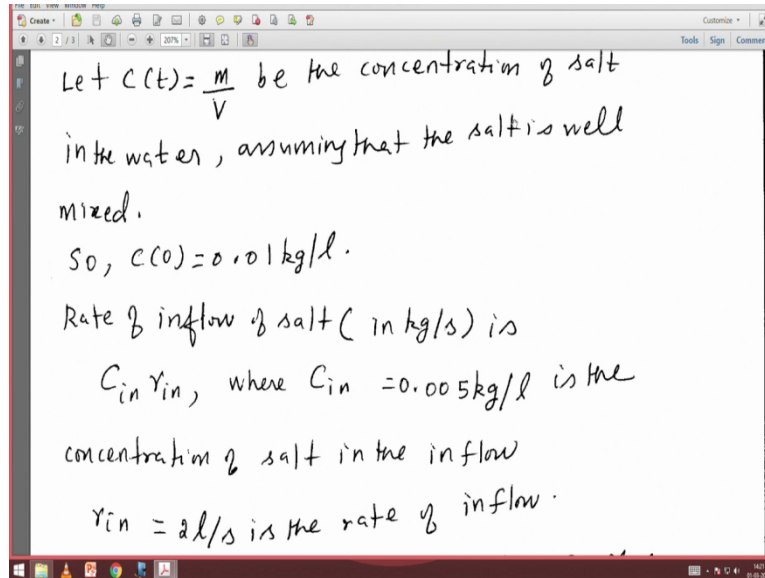 File Edit View Window Help
Create
Customize
2 / 3
207%
Tools Sign Comment
Let C(t) = m/V be the concentration of salt
in the water, assuming that the salt is well
mixed.
So, C(0) = 0.01 kg/l.
Rate of inflow of salt (in kg/s) is
C_in r_in, where C_in = 0.005 kg/l is the
concentration of salt in the inflow
r_in = 2 l/s is the rate of inflow.
14:21